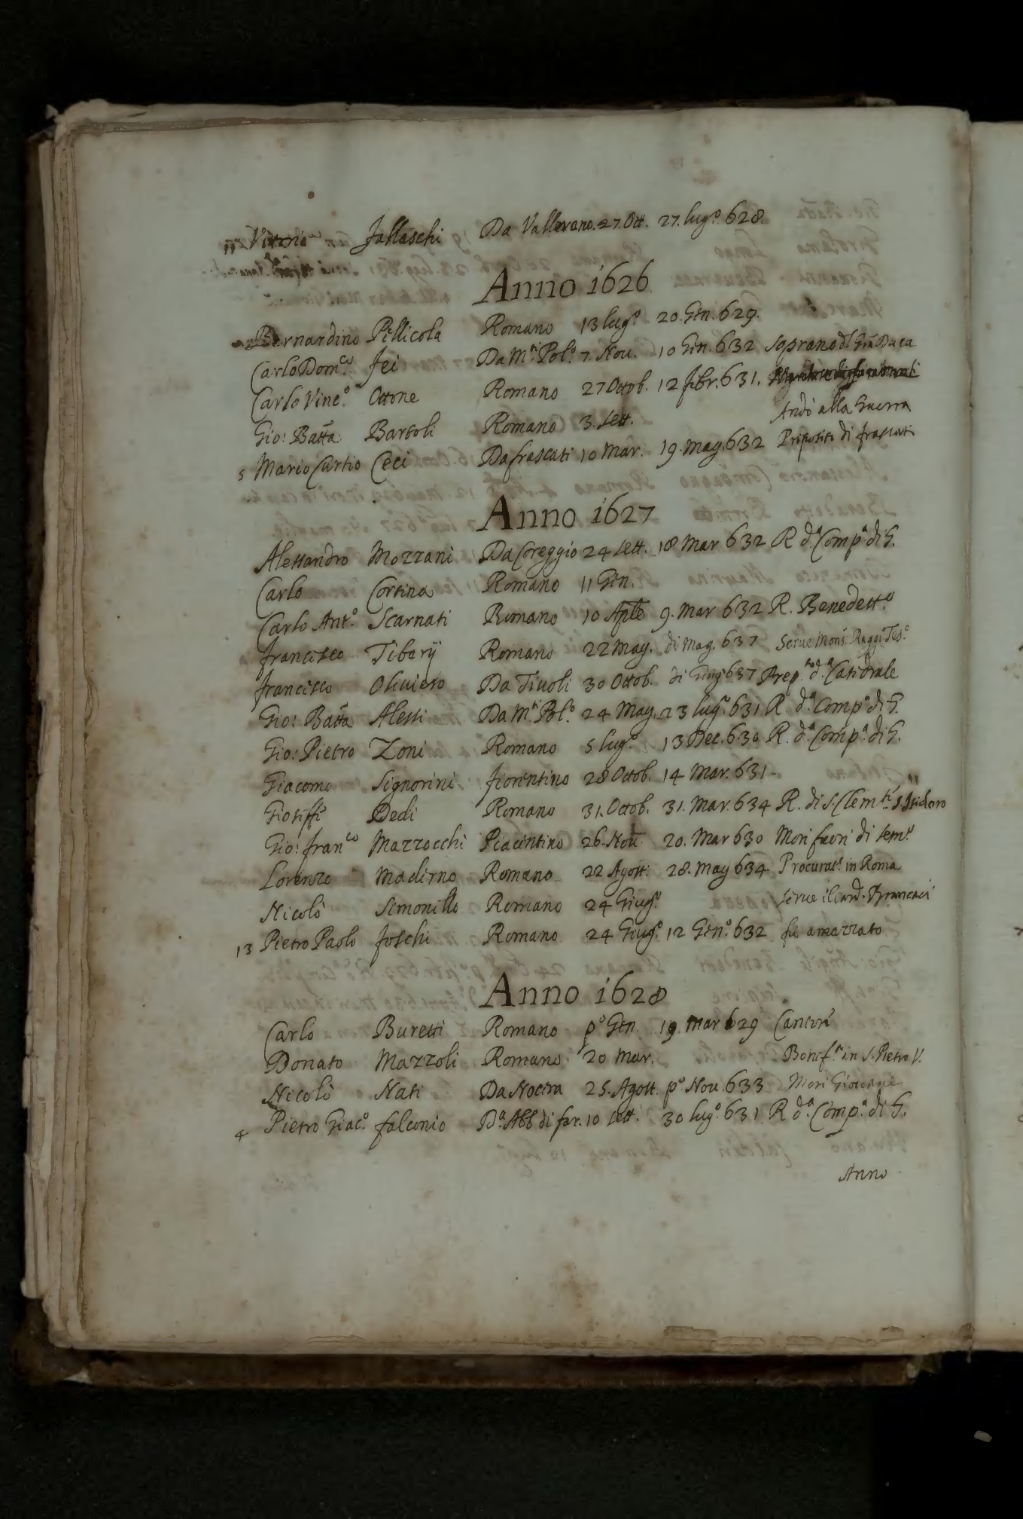 11 Vittorio Jallaschi Da Vallerano. 27. Ott. 27. lug.º 628.
Anno 1626
Bernardino Pellicola Romano 13 lug.º 20. Gen. 629.
Carlo Dom.co Fei Da M.te Pol.º 7. Nou. 10 Gen. 632 Soprano d'l Gra Duca
Carlo Vinc.º Ottone Romano 27 Ottob. 12 febr. 631.
Gio: Batta Bartoli Romano 3. Sett. Andò alla Guerra
5 Mario Curtio Ceci Da frascati 10 Mar. 19. Mag. 632 Preposito di frascati
Anno 1627
Alessandro Mozzani Da Coreggio 24 Sett. 18 Mar 632 R. d.ª Comp.ª di G.
Carlo Cortina Romano 11 Gen.
Carlo Ant.º Scarnati Romano 10 Aple 9. Mar 632 R. Benedett.º
francesco Tiberÿ Romano 22 Mag. di Mag. 637 Serue Mons. Raggi Tes.º
francesco Oliuiero Da Tiuoli 30 Ottob. di Giug 637 Prep.to d.ª Catedrale
Gio: Batta Alessi Da M.te Pol.º 24 Mag. 23 lug.º 631 R. d.ª Comp.ª di G.
Gio: Pietro Zoni Romano 5 lug.º 13 Dec. 630 R. d.ª Comp.ª di G.
Giacomo Signorini fiorentino 28 Ottob. 14 Mar. 631
Gioseffe Dedi Romano 31. Ottob. 31. Mar. 634 R. di S. Clem.te S. Isidoro
Gio: fran.co Mazzocchi Piacentino 26. Nou 20. Mar 630 Morì fuori di Sem.º
Lorenzo Maderno Romano 22 Agosti 28. Mag 634 Procurat.e in Roma
Nicolò Simonillo Romano 24 Giug.º Serue il Card. Brancacci
13 Pietro Paolo Foschi Romano 24 Giug.º 12 Gen.º 632 fù amazzato
Anno 1628
Carlo Buretti Romano p.º Gen. 19. Mar 629 Cantore
Donato Mazzoli Romano 20 Mar. Benef.to in S. Pietro V.
Nicolò Nati Da Nocera 25. Agott p.º Nou. 633 Morì Giouane
4 Pietro Giac.º falconio D.ª Abb di far. 10 Sett. 30 lug.º 631 R. d.ª Comp.ª di G.
Anno